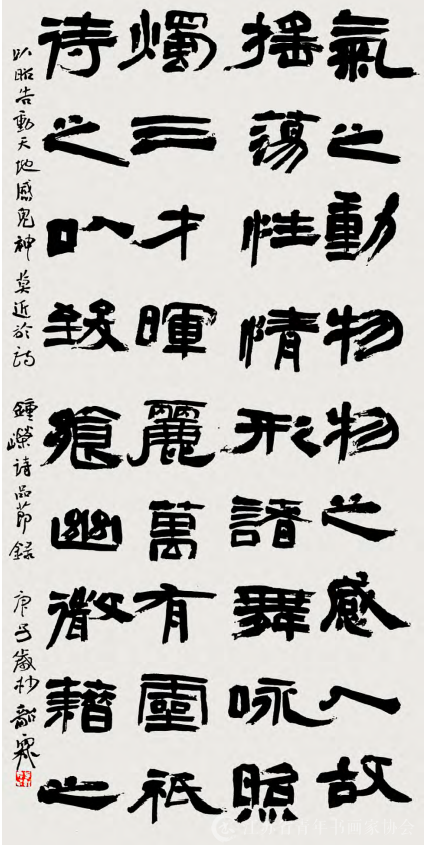 氣之動物物之感人故
搖蕩性情形諸舞咏照
燭三才暉麗萬有靈祇
待之以致飨幽微藉之
以昭告動天地感鬼神莫近於詩 鍾嶸詩品節録 庚子歲杪
江苏省青年书画家协会